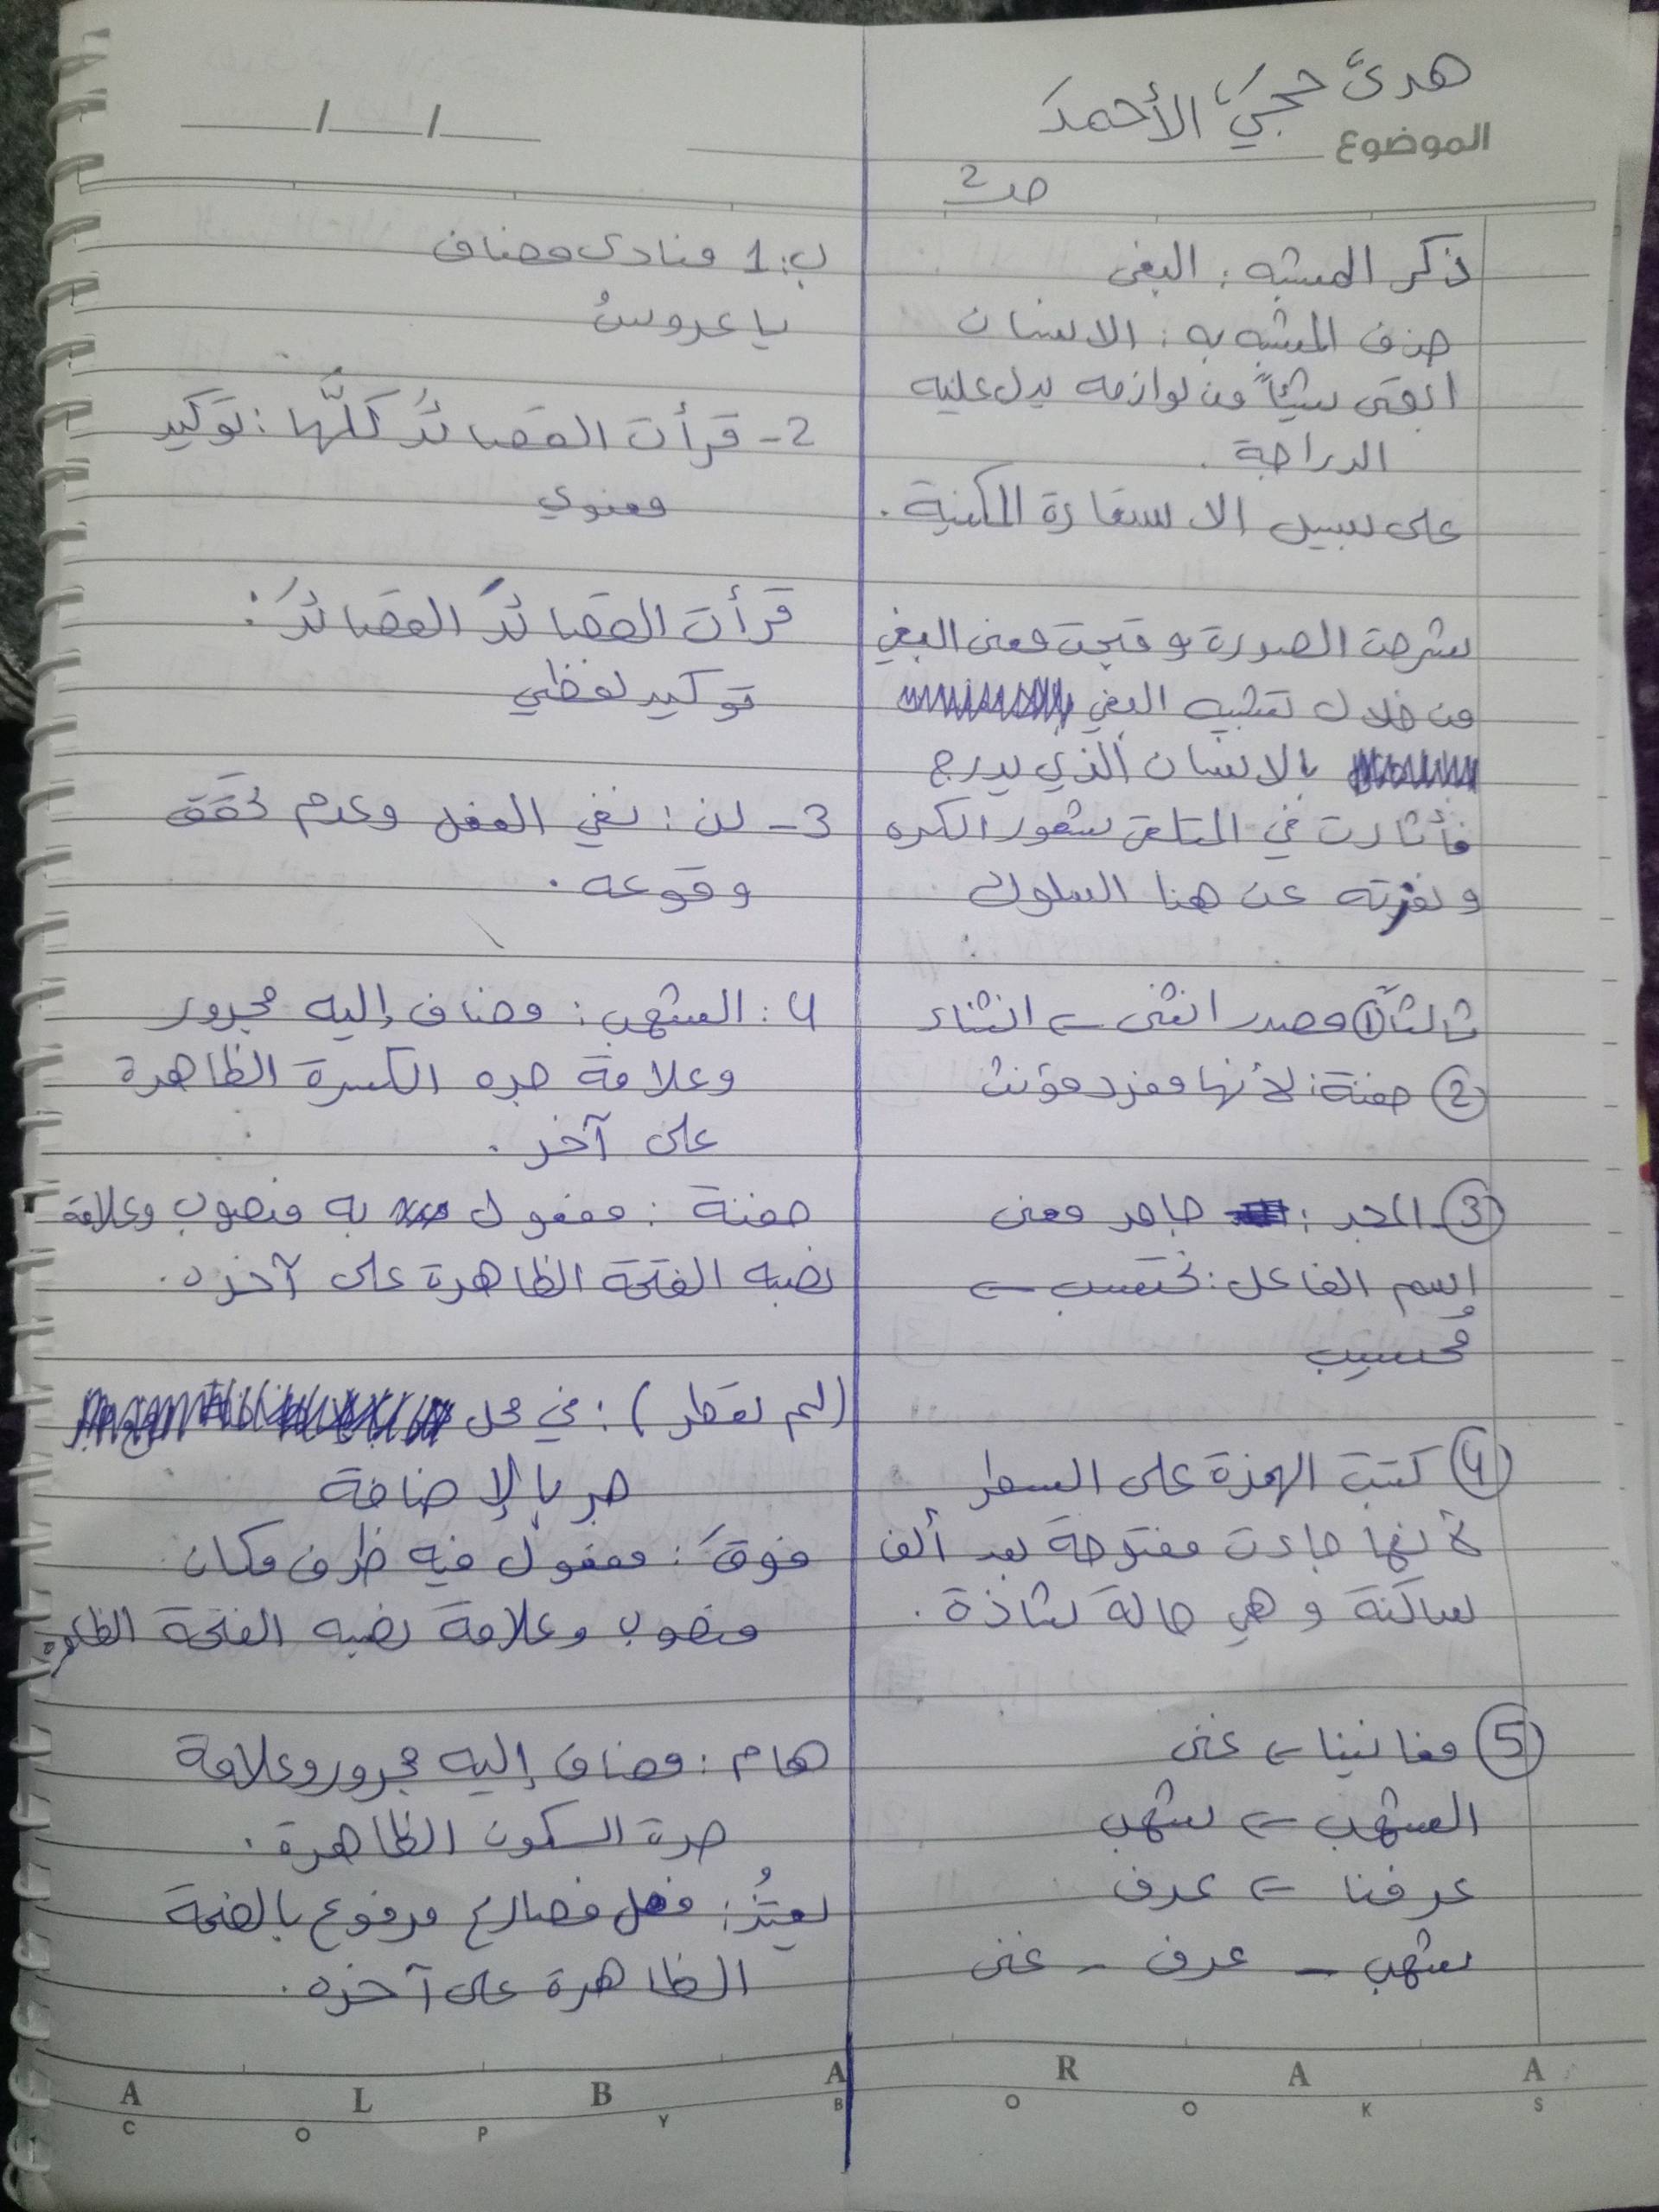 هدى حجي الأحمد
الموضوع
ـــ/ـــ/ـــ
صـ 2
ذكر المشبه : البغي
حذف المشبه به : الانسان
ابقى شيئاً من لوازمه يدل عليه
الدراجة .
على سبيل الاستعارة المكنية .
شرحت الصورة وقبحت معنى البغي
من خلال تشبيه البغي
بالانسان الذي يدرج
فأثارت في المتلقي شعور الكره
ونفرته عن هنا السلوك
ثالثاً ① مصدر انثنى ← انثناء
② حفنة: لأنها مفرد مؤنث
③ المجد : جامد معنى
اسم الفاعل : تحتسب ←
مُحسيب
④ كتبت الهمزة على السطر
لأنها جاءت مفتوحة بعد ألف
ساكنة وهي حالة شاذة .
⑤ مغانينا ← غنى
الشهب ← شهب
عرفنا ← عرف
شهب - عرف - غنى
ب: 1 منادى مضاف
يا عروسُ
2- قرأت القصائدَ كلَّها : توكيد
معنوي
قرأت القصائدَ القصائدَ :
توكيد لفظي
3- لن : نفي الفعل وعدم تحقق
وقوعه .
4 : الشهب : مضاف إليه مجرور
وعلامة جره الكسرة الظاهرة
على آخر .
حفنة : مفعول به منصوب وعلامة
نصبه الفتحة الظاهرة على آخره .
(لم تقطر) : في محل
جر بالإضافة
فوقَ : مفعول فيه ظرف مكان
منصوب وعلامة نصبه الفتحة الظاهرة
هام : مضاف إليه مجرور وعلامة
جرة السكون الظاهرة .
فعل مضارع مرفوع بالضمة
الظاهرة على آخره .
A L B A R A A
C O P Y B O O K S